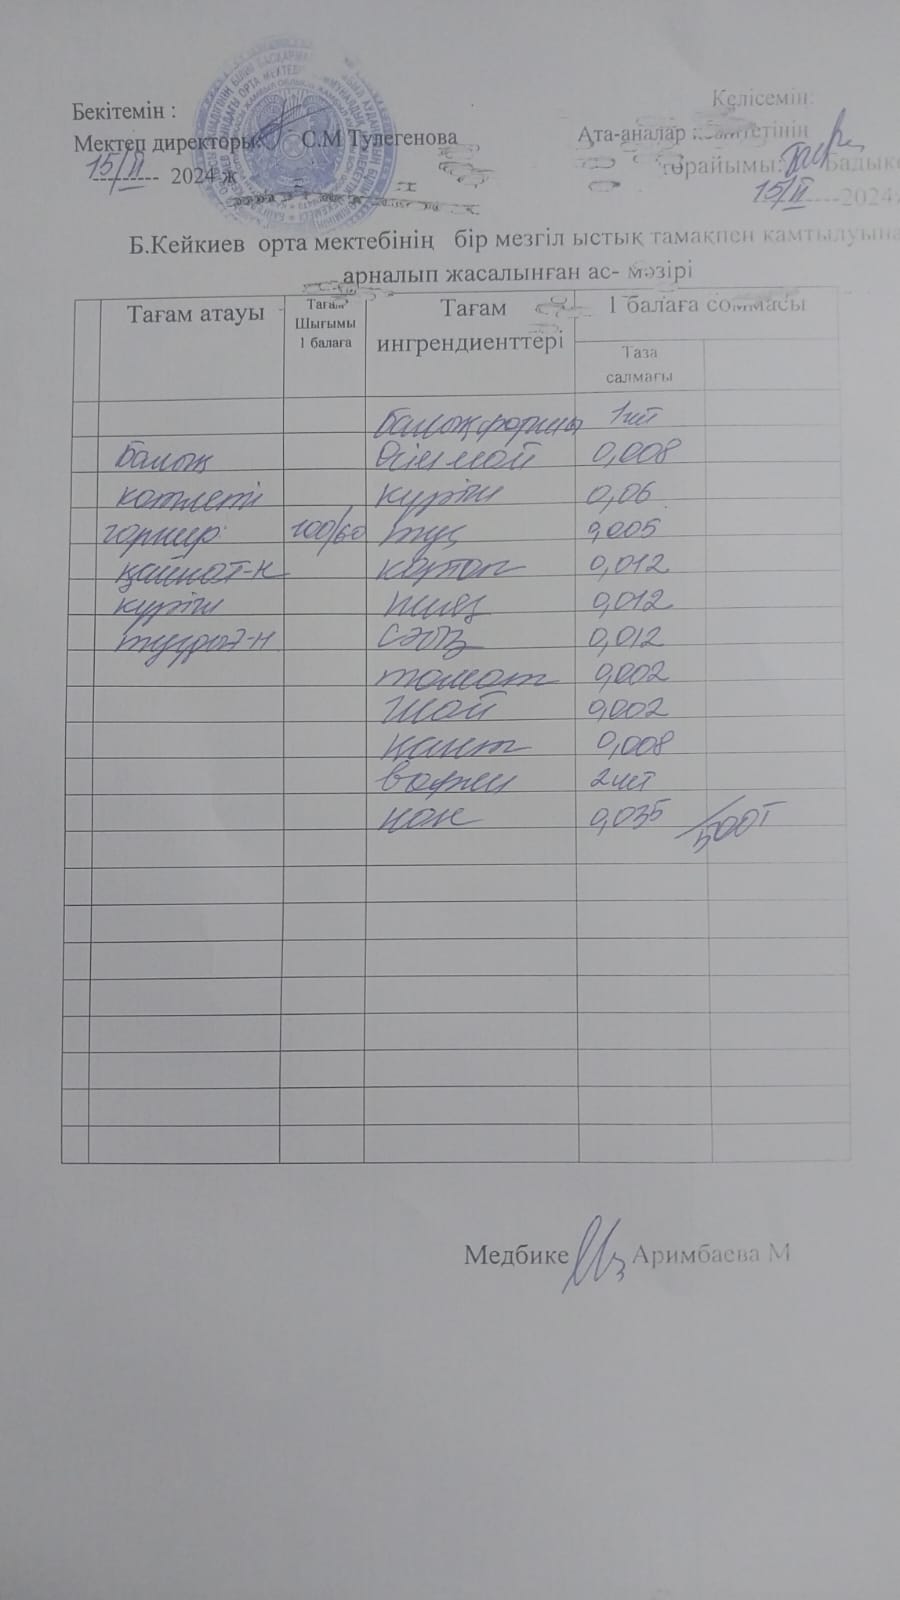 Бекітемін :
Келісемін:
Мектеп директоры: С.М Тулегенова
Ата-аналар комитетінің
15/II 2024 ж
төрайымы:
15/II ----2024
Б.Кейкиев орта мектебінің бір мезгіл ыстық тамақпен қамтылуына
арналып жасалынған ас- мәзірі
Тағам атауы
Тағам
Шығымы
1 балаға
Тағам
ингрендиенттері
1 балаға соммасы
Таза
салмағы
балық 1шт
Балық Өсім май 0,008
котлеті күріш 0,06
гарнир 100/60 тұз 0,005
қайнат-н картоп 0,012
күріш пияз 0,012
тұздал-н сәбіз 0,012
томат 0,002
Шай 0,002
қант 0,008
вафли 2шт
нан 0,035 500т
Медбике Аримбаева М